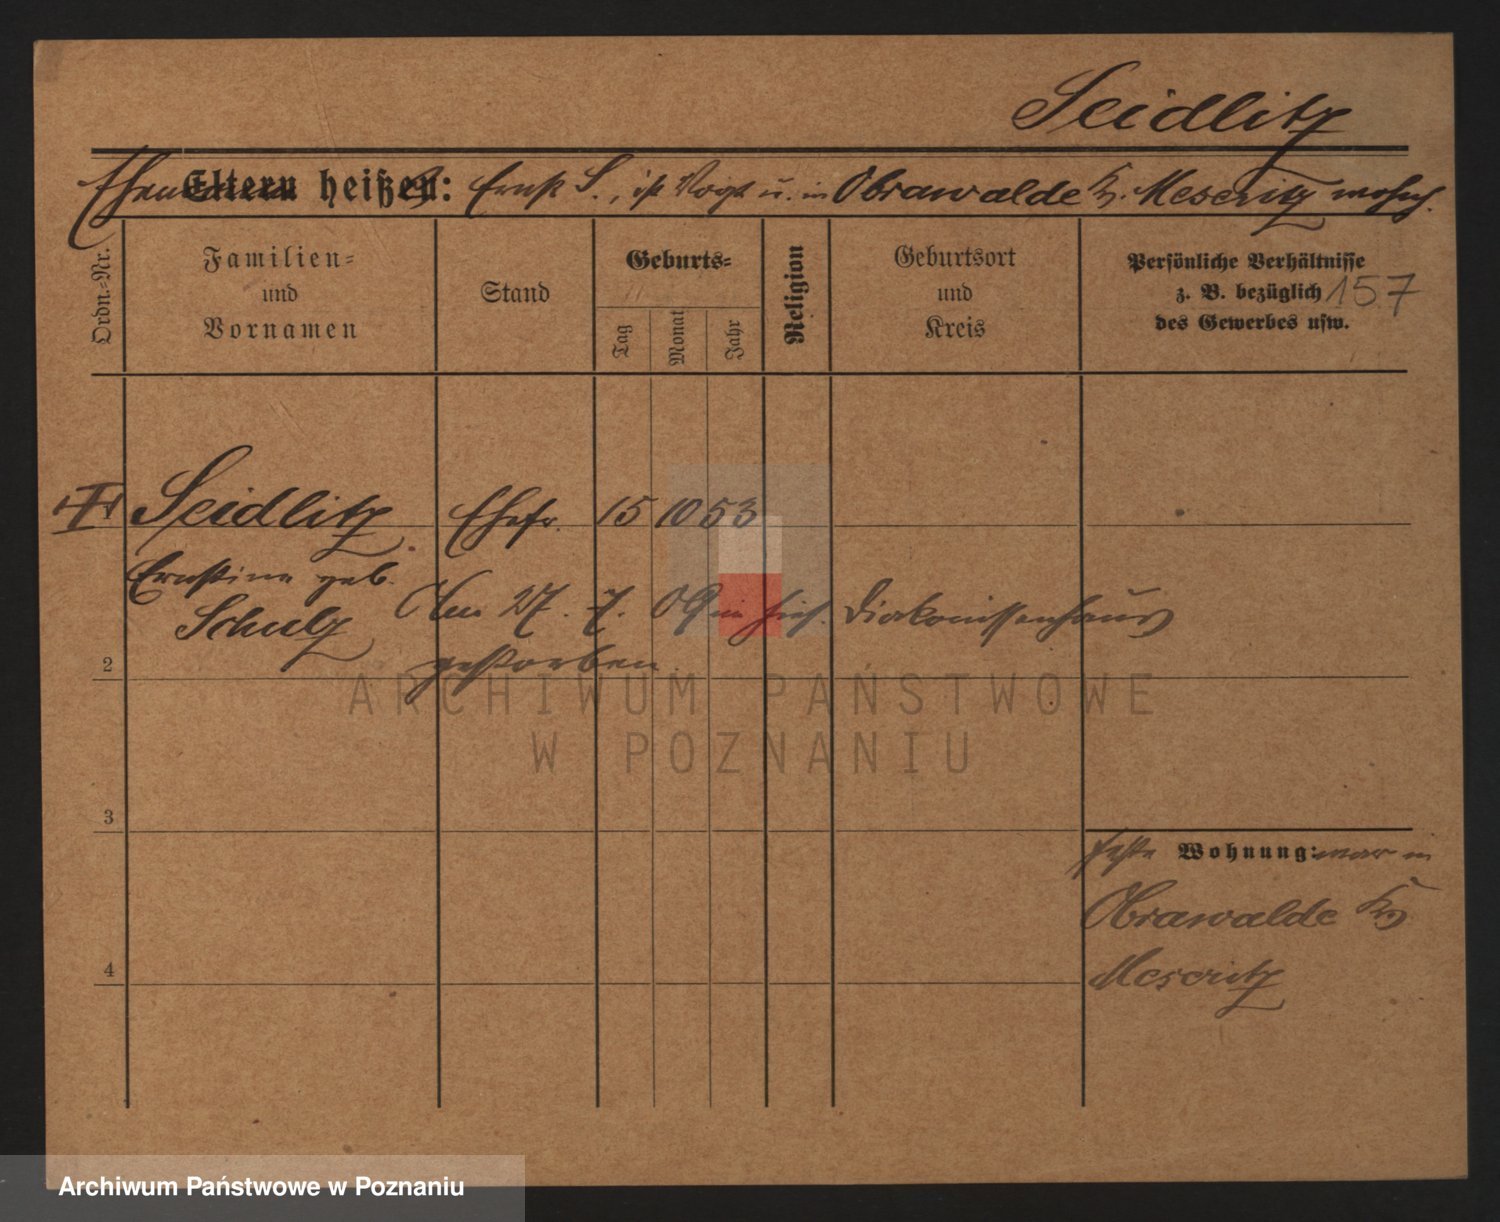 Seidlitz
Ehemann Eltern heißen: Ernst S., ist Vogt u. in Obrawalde Kr. Meseritz wohnh.
Ordn.-Nr.
Familien-
und
Vornamen
Stand
Geburts-
Tag
Monat
Jahr
Religion
Geburtsort
und
Kreis
Persönliche Verhältnisse
z. B. bezüglich
des Gewerbes usw.
157
1 Seidlitz Ehefr. 15 10 53
Ernstine geb.
Schulz Am 27. 7. 09 im hies. Diakonissenhaus
2 gestorben.
ARCHIWUM PAŃSTWOWE
W POZNANIU
3
feste Wohnung: war in
Obrawalde Kr
4 Meseritz
Archiwum Państwowe w Poznaniu